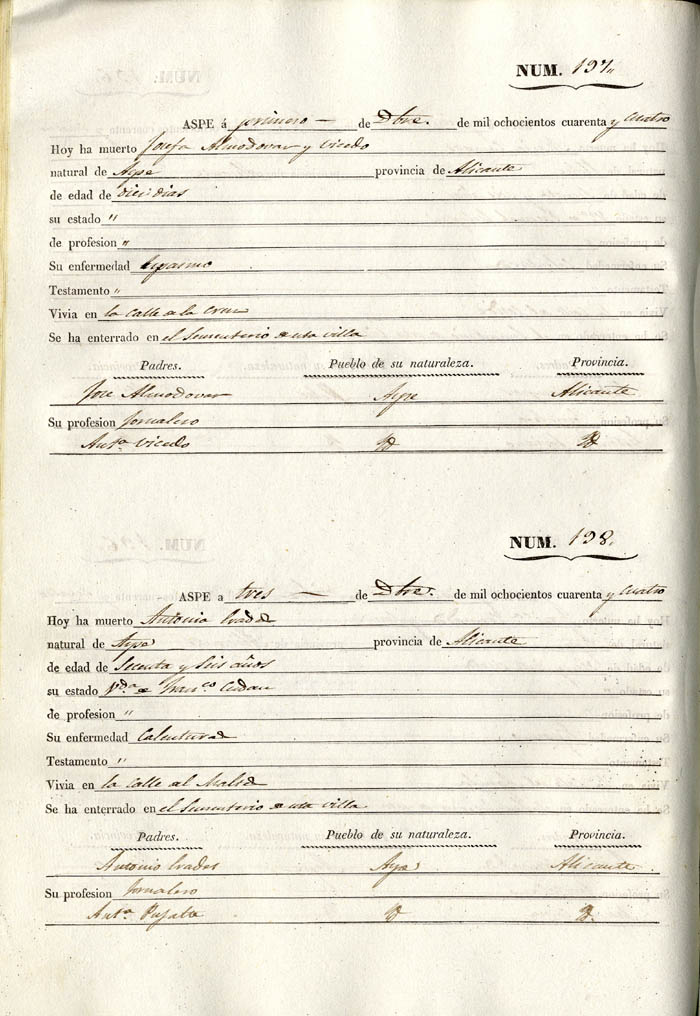 NUM. 197„
ASPE á primero — de Dbre. de mil ochocientos cuarenta y cuatro
Hoy ha muerto Josefa Almodovar y Vicedo
natural de Aspe provincia de Alicante
de edad de diez dias
su estado „
de profesion „
Su enfermedad espasmo
Testamento „
Vivia en la calle de la Cruz
Se ha enterrado en el Sementerio de esta villa
Padres. Pueblo de su naturaleza. Provincia.
Jose Almodovar Aspe Alicante
Su profesion Jornalero
Antª Vicedo Yd Yd
NUM. 198.
ASPE a tres — de Dbre. de mil ochocientos cuarenta y cuatro
Hoy ha muerto Antonia
natural de Aspe provincia de Alicante
de edad de Secenta y seis años
su estado Vdª de Franco
de profesion „
Su enfermedad Calenturas
Testamento „
Vivia en la calle del
Se ha enterrado en el Sementerio de esta villa
Padres. Pueblo de su naturaleza. Provincia.
Antonio Aspe Alicante
Su profesion Jornalero
Antª Pujalte Yd Yd.